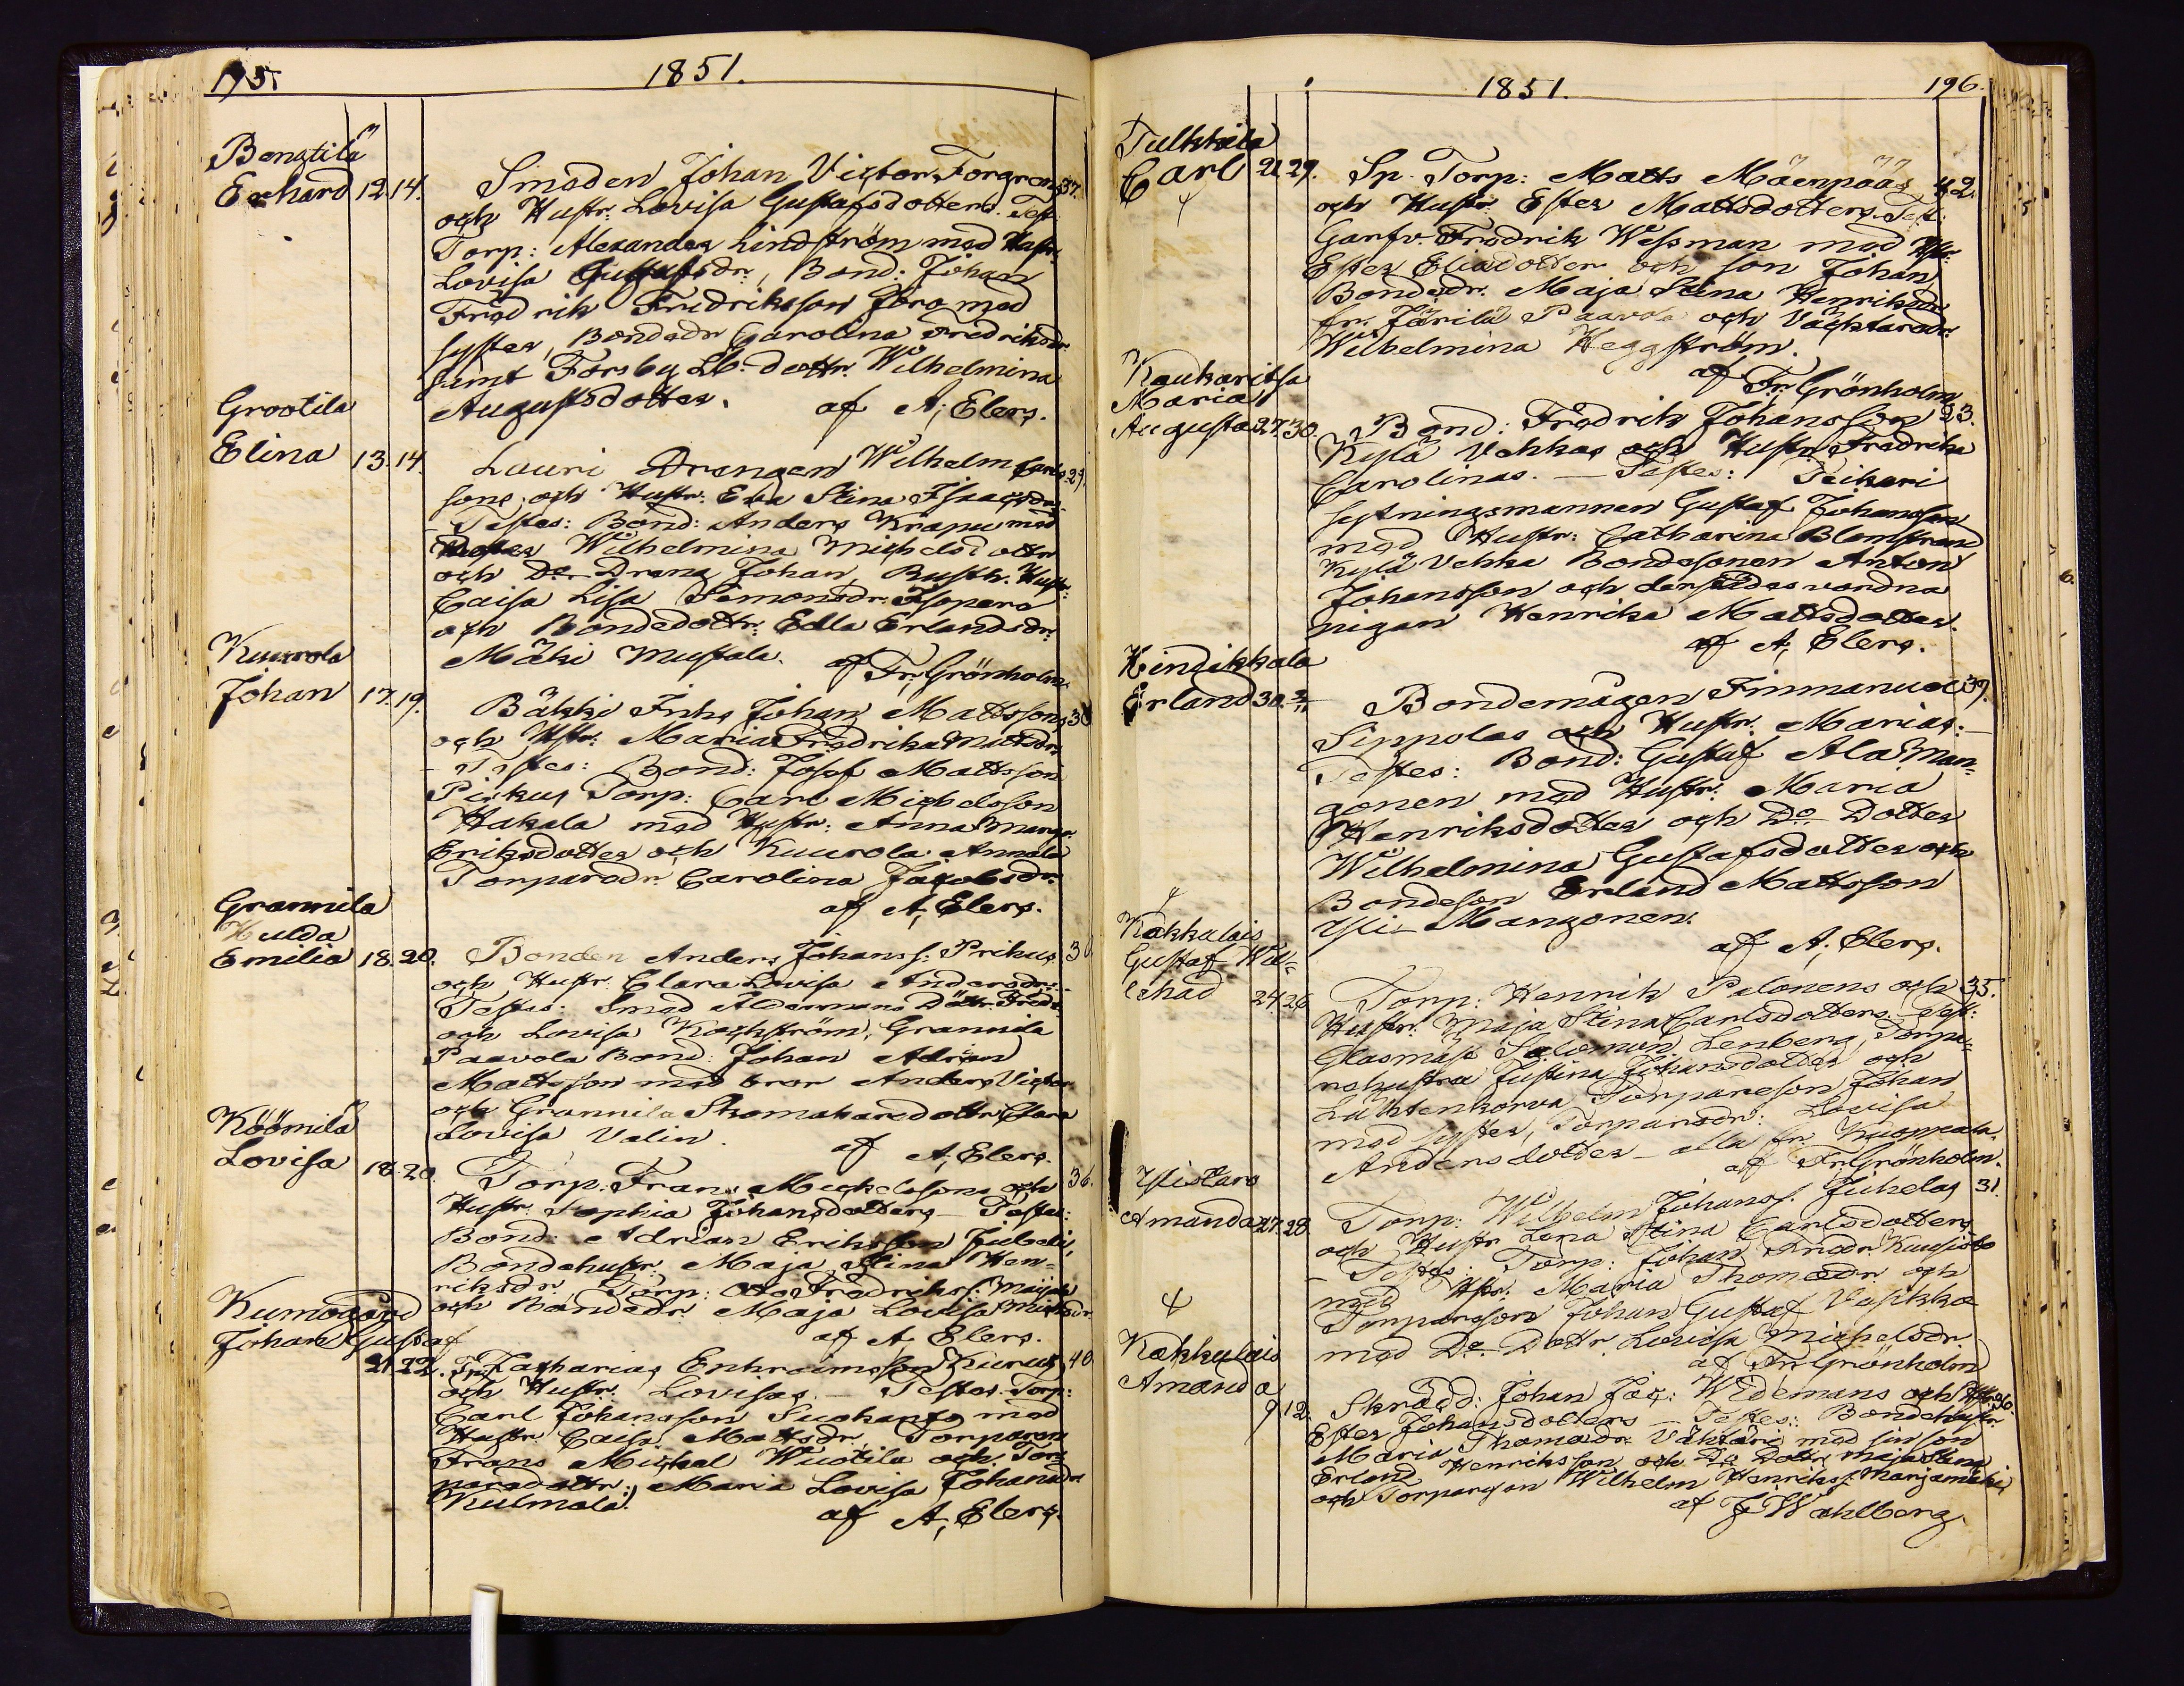 195.
1851.
Bengtilä
Erhard 12. 14. Smeden Johan Victor Forgrens 37.
och Hustr. Lovisa Gustafsdotters. Test:
Torp: Alexander Lindström med Hustr:
Lovisa Gustafsdr:, Bond: Johan
Fredrik Fredriksson Jbro med
syster, Bondedr Carolina Fredriksdr
samt Forsby Lb. dottr. Wilhelmina
Augustsdotter. af A, Elers.
Grootila
Elina 13. 14. Lauri Drengen Wilhelm Carls- 29.
sons och Hustr: Eva Stina Isaacsdrs
– Testes: Bond: Anders Krapu med
Wilhelmina Michelsdottr
och Do Dräng Johan, Rusth. Hustr:
Caisa Lisa Simonsdr. Isopere
och Bondedottr: Edla Erlandsdr.
Mäki Mustala. af Fr. Grönholm.
Kuurola
Johan 17. 19. Bäkki Inhs Johan Mattssons 30
och Hstr: Maria Fredrika Mattsdrs
– Testes: Bond: Josef Mattsson
Pirkus Torp: Carl Michelsson
Hakala med Hustr: Anna Margr.
Eriksdotter och Kuurola Annala
Torparedr. Carolina Jacobsdr.
af A, Elers.
Grannila
Hulda
Emilia 18. 20. Bonden Anders Johanss: Prihus 3
och Hustr. Clara Lovisa Andersdrs.
Testes: Smed Åldermans Döttr. Fredr.
och Lovisa Kockström, Grannila
Paavola Bond: Johan Adrian
Mattsson med bror Anders Victor
och Grannila Skomakaredottr Clara
Lovisa Valin. af A, Elers.
Köömilä
Lovisa 18. 20. Torp. Frans Mickelssons och 36.
Hustr. Sophia Johansdotters – Testes:
Bond: Adrian Eriksson Jubeli,
Bondehustr. Maja Stina Hen-
riksdr. Torp: Otto Fredrikss: Maijala
och Bondedr. Maja Lovisa Michsdr.
af A Elers.
Kumogård
Johan Gustaf
21. 22. Zacharias Enhraimsson Kurus 40
och Hustr. Lovisas. – Testes: Torp:
Carl Johansson Suohanta med
Hustr. Caisa Mattsdr. Torparen
Frans Michel Wuotila och Tor-
paredottr:, Maria Lovisa Johansdr
Kulmala. af A, Elers.
1851.
196.
Tulkkila
Carl 21. 29. Sp. Torp: Matts Mäenpääs 42.
och Hustr. Ester Mattsdotters. Test:
Garfv. Fredrik Wessman med Hstr:
Ester Eliædotter och son Johan,
Bondedr. Maja Stina Henriksdr
fr. Järilä Paavola och Väcktaredr
Wilhelmina Heggström.
af Fr. Grönholm.
Kaukaritsa
Maria
Augusta 27. 30. Bond: Fredrik Johansson 23.
Kylä Vehkas och Hustr. Fredrika
Carolinas. – Testes: Peikari
sytningsmannen Gustaf Johansson
med Hustr: Catharina Blomstrand
Kylä Vehka Bondesonen Anton
Johansson och derstädes vordna
pigan Henrika Mattsdotter.
af A, Elers.
Hindikkala
Erland 30. 2/11 Bondemågen Immanuel 37.
Sippolas och Hustr. Marias: –
Testes: Bond: Gustaf Ala Man-
gonen med Hustr. Maria
Henriksdotter och Do Dotter
Wilhelmina Gustafsdotter och
Bondeson Erland Mattsson
Yli-Mangonen.
af A, Elers.
Kakkulais
Gustaf Wil-
lehad 24. 26. Torp: Henrik Pelonens och 35.
Hustr. Maja Stina Carlsdotters. Test:
Glasmäst Salomon Lenberg, Torpa-
rehustru Justina Johansdotter och
Lähtenkorva Torpareson Johan
med syster, Torparedr: Lovisa
Andersdotter – alla fr. Kuoppala.
af Fr. Grönholm.
Ylistaro
Amanda 27. 28. Torp: Wilhelm Johanss. Juhelas 31.
och Hustr Lena Stina Carlsdotters
– Testes: Torp: Johan Fredr. Kuusisto
med Hstr. Maria Thomædr. och
Torpareson Johan Gustaf Vasikka
med Do Dottr. Lovisa Michelsdr
af Fr. Grönholm
Kakkulais
Amanda
9 12. Skrädd: Johan Jac: Widemans och Hstr. 36.
Ester Johansdotters – Testes: Bondehustr.
Maria Thomædr. Vähtäri med sin son
Erland Henriksson och Do Dottr Maja Stina
och Torpareson Wilhelm Henrikss. Marjamäki
af J. Wahlberg.